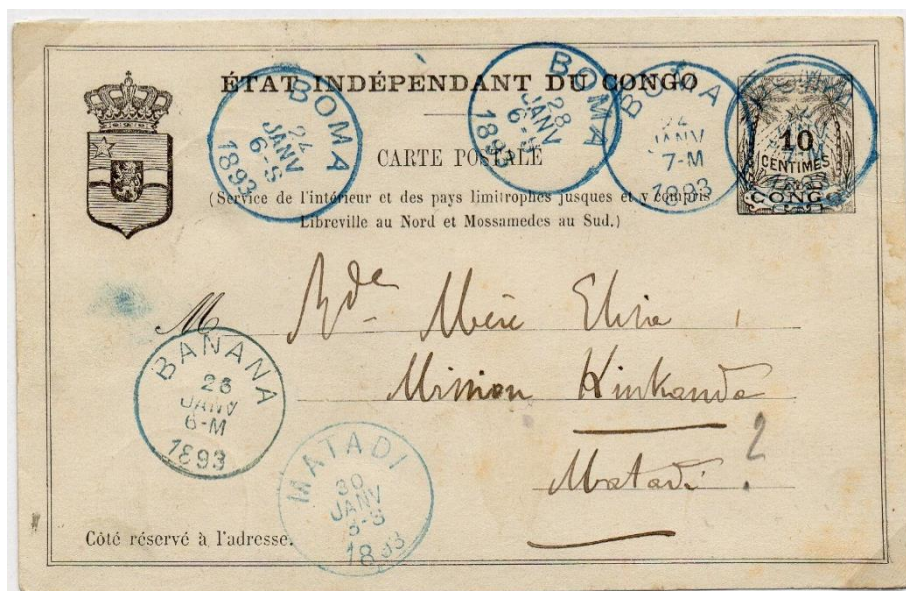 ÉTAT INDÉPENDANT DU CONGO
CARTE POSTALE
(Service de l'intérieur et des pays limitrophes jusques et y compris
Libreville au Nord et Mossamedes au Sud.)
10
CENTIMES
CONGO
BOMA
24
JANV
6-S
1893
BOMA
28
JANV
6-S
1893
BOMA
JANV
7-M
1893
M Rde Mère Elisa
Mission Kinkanda
Matadi
?
BANANA
26
JANV
6-M
1893
MATADI
30
JANV
1893
Côté réservé à l'adresse.